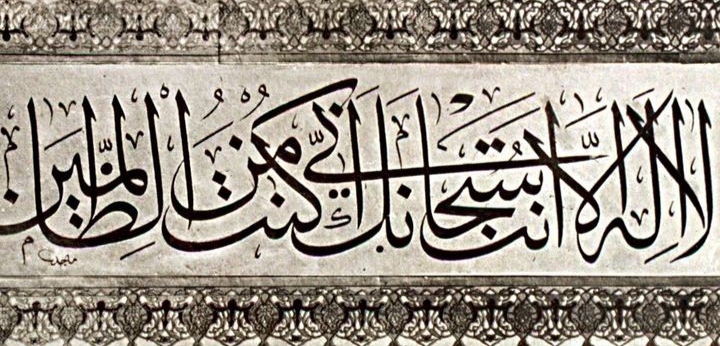 لا اله الا انت سبحانك اني كنت من الظالمين